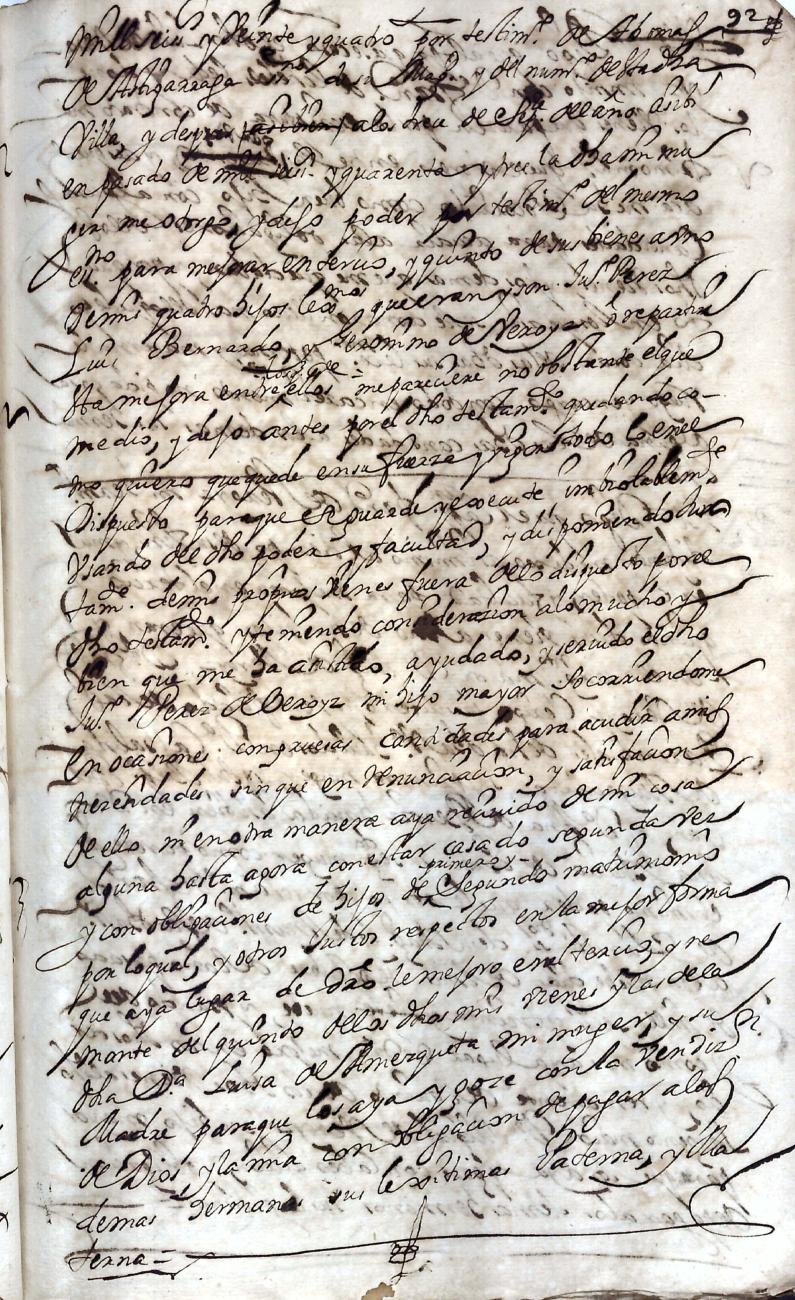 92
Mill seis.s y Veinte y quatro por testim.o de Thomas
de Astigarraga s.no de su Mag.d y del num.o desta dha
Villa, y despues alos trece de del año
en pasado de mill seis.s y quarenta y tres la dha mi mu
ger me otorgo, y dejo poder por testim.o del mesmo
ess.no para mejorar en tercio, y quinto de sus bienes a uno
de mis quatro hijos lex.mos que eran, y son Ju.o Perez
Luis Bernardo, y Geronimo de Veroyz o repartir
dta mejora entre ellos me pareciere no obstante el que
medio, y dejo antes por el dho testam.to quedando co-
mo quiero que quede en su fuerza y vigor todo lo en el
Dispuesto para que se guarde y execute imbiolablem.te
Usando del dho poder y facultad, y disponiendo
de mis proprios Vienes fuera dello dispuesto por el
dho testam.to y teniendo consideracion alo mucho y
bien que me ha asistido, ayudado, y seruido el dho
Ju.o Perez de Veroyz mi hijo mayor Socorriendome
en ocasiones con gruesas cantidades para acudir a mis
necesidades sin que en Renunciacion, y satisfacion
de ello ni en otra manera aya reciuido de mi cosa
alguna hasta agora con estar casado segunda Vez
y con obligaciones de hijos de primero y Segundo matrimonio
por lo qual, y otros Justos respectos en la mejor forma
que aya lugar de dr̃o le mejoro en el tercio, y re
mante del quinto dellos dhos mis Vienes y las de la
dha D.a Luisa de Amezqueta mi muger, y su
Madre para que los aya y goze con la Vendiz.on
de Dios y la mia con obligacion de pagar a los
demas hermanos sus lexitimas Paterna, y Ma
terna =